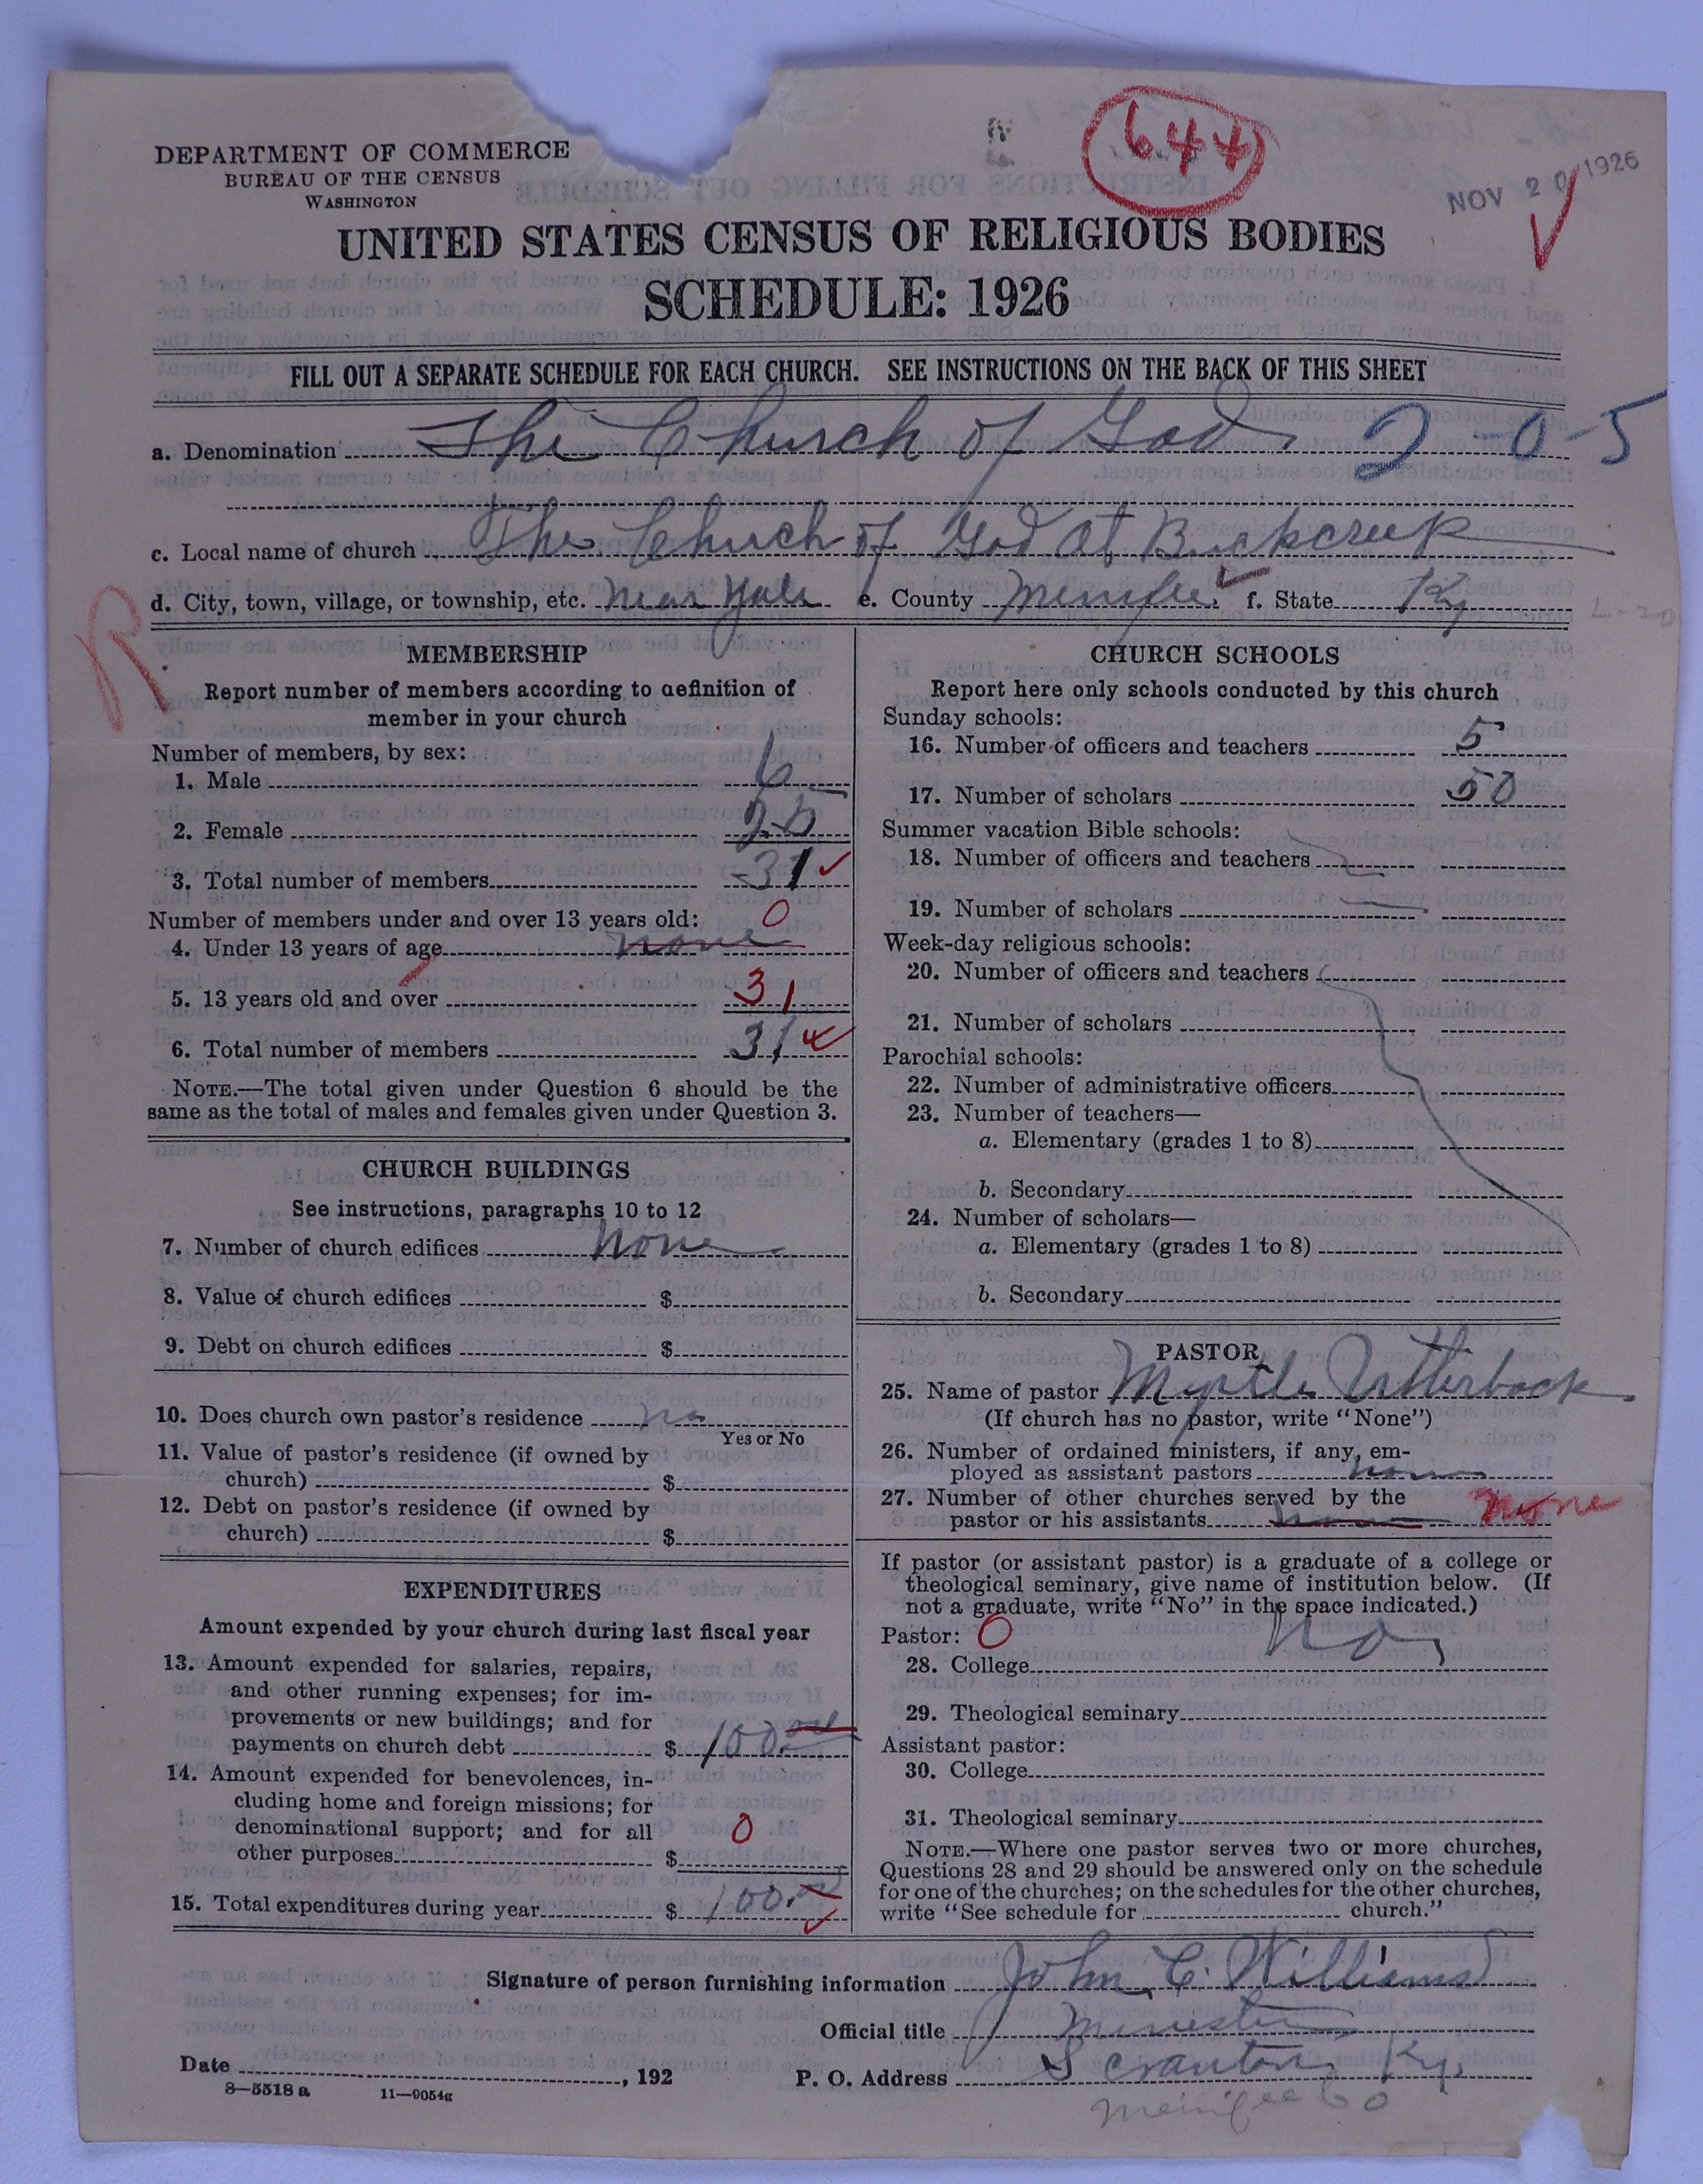 644
NOV 20 1926
DEPARTMENT OF COMMERCE
BUREAU OF THE CENSUS
WASHINGTON
UNITED STATES CENSUS OF RELIGIOUS BODIES
SCHEDULE: 1926
FILL OUT A SEPARATE SCHEDULE FOR EACH CHURCH. SEE INSTRUCTIONS ON THE BACK OF THIS SHEET
a. Denomination The Church of God. 2-0-5
c. Local name of church The Church of God at Buckcreek
d. City, town, village, or township, etc. Near Yale e. County Menifee f. State Ky
L-20
R
MEMBERSHIP
Report number of members according to definition of
member in your church
Number of members, by sex:
1. Male 6
2. Female 25
3. Total number of members 31
Number of members under and over 13 years old: 0
4. Under 13 years of age none
5. 13 years old and over 31
6. Total number of members 31
NOTE.—The total given under Question 6 should be the
same as the total of males and females given under Question 3.
CHURCH BUILDINGS
See instructions, paragraphs 10 to 12
7. Number of church edifices None
8. Value of church edifices $
9. Debt on church edifices $
10. Does church own pastor's residence no
Yes or No
11. Value of pastor's residence (if owned by
church) $
12. Debt on pastor's residence (if owned by
church) $
EXPENDITURES
Amount expended by your church during last fiscal year
13. Amount expended for salaries, repairs,
and other running expenses; for im-
provements or new buildings; and for
payments on church debt $ 100.00
14. Amount expended for benevolences, in-
cluding home and foreign missions; for
denominational support; and for all 0
other purposes $
15. Total expenditures during year $ 100.00
CHURCH SCHOOLS
Report here only schools conducted by this church
Sunday schools:
16. Number of officers and teachers 5
17. Number of scholars 50
Summer vacation Bible schools:
18. Number of officers and teachers
19. Number of scholars
Week-day religious schools:
20. Number of officers and teachers
21. Number of scholars
Parochial schools:
22. Number of administrative officers
23. Number of teachers—
a. Elementary (grades 1 to 8)
b. Secondary
24. Number of scholars—
a. Elementary (grades 1 to 8)
b. Secondary
PASTOR
25. Name of pastor Myrtle Utterback
(If church has no pastor, write "None")
26. Number of ordained ministers, if any, em-
ployed as assistant pastors none
27. Number of other churches served by the
pastor or his assistants none none
If pastor (or assistant pastor) is a graduate of a college or
theological seminary, give name of institution below. (If
not a graduate, write "No" in the space indicated.)
Pastor: 0 No,
28. College
29. Theological seminary
Assistant pastor:
30. College
31. Theological seminary
NOTE.—Where one pastor serves two or more churches,
Questions 28 and 29 should be answered only on the schedule
for one of the churches; on the schedules for the other churches,
write "See schedule for church."
Signature of person furnishing information John C. Williams
Official title Minister
Date , 192
P. O. Address Scranton Ky.
Meinifee Co
8—5518 a 11—9054g